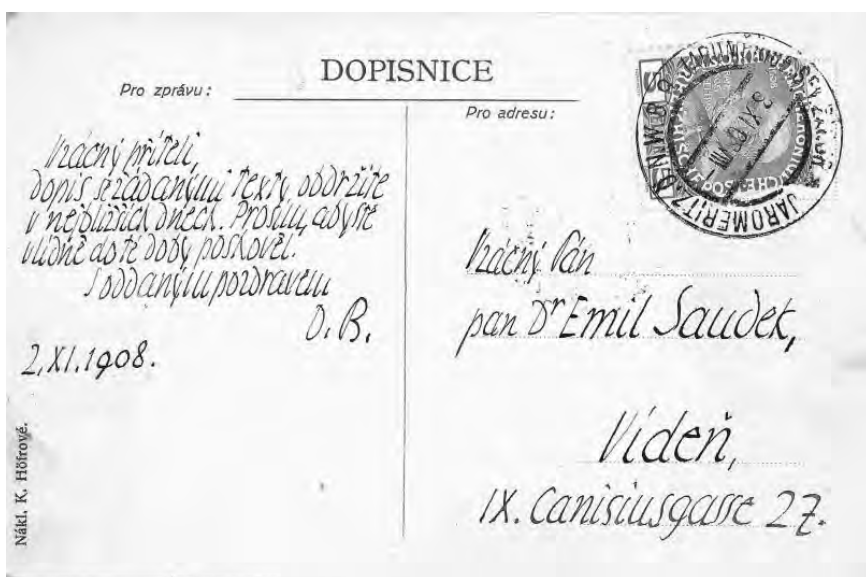 DOPISNICE
Pro zprávu:
Vzácný příteli,
dopis se žádanými texty obdržíte
v nejbližších dnech. Prosím, abyste
vlídně do té doby poshověl.
S oddaným pozdravem
O. B.
2. XI. 1908.
Nákl. K. Höfrové.
Pro adresu:
Vzácný Pán
pan Dr Emil Saudek,
Vídeň,
IX. Canisiusgasse 27.
JAROMERITZ